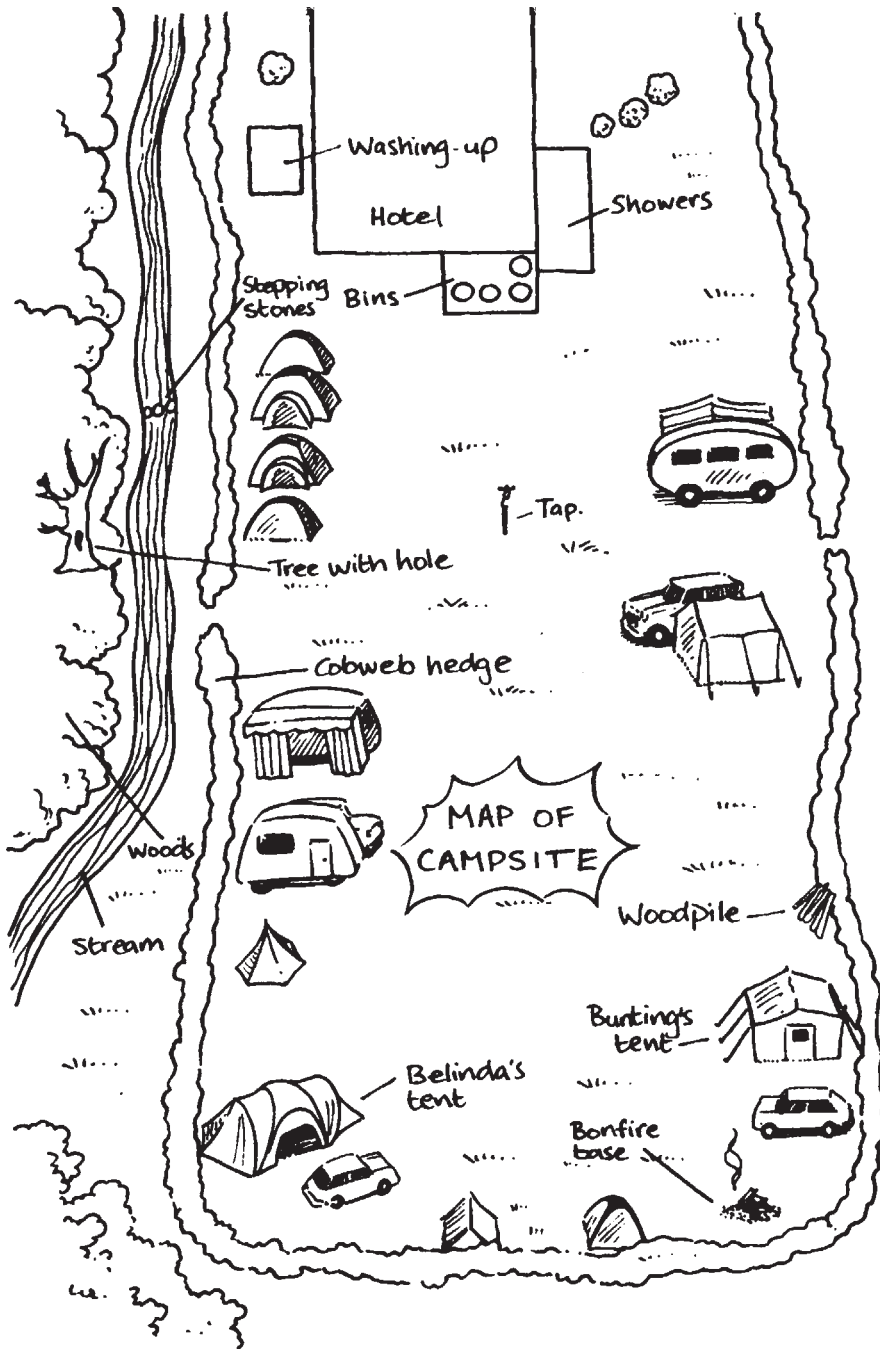 Washing-up
Hotel
Showers
Stepping
stones
Bins
Tap.
Tree with hole
Cobweb hedge
MAP OF
CAMPSITE
Woods
Stream
Woodpile
Bunting's
tent
Belinda's
tent
Bonfire
base